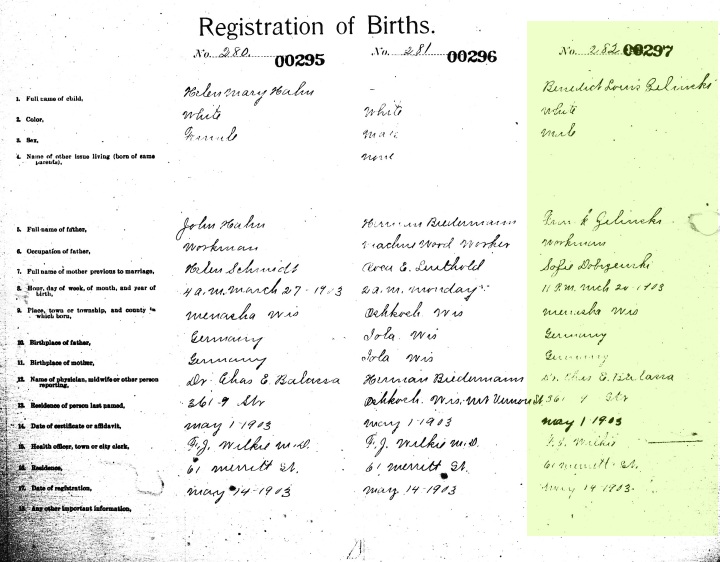 Registration of Births.
No. 280. 00295 No. 281 00296 No. 282 00297
1. Full name of child, Helen Mary Hahn - Benedict Louis Gelinski
2. Color, White White White
3. Sex, Female Male Male
4. Name of other issue living (born of same none
parents),
5. Full name of father, John Hahn Herman Biedermann Frank Gelinski
6. Occupation of father, Workman Machine Wood Worker Workman
7. Full name of mother previous to marriage, Helen Schmidt E. Luthold Sofie
8. Hour, day of week, of month, and year of 4 a.m. March 27-1903 2 a.m. Monday 11 P.M. Mch 20-1903
birth,
9. Place, town or township, and county in Menasha Wis Oshkosh Wis Menasha Wis
which born,
10. Birthplace of father, Germany Iola Wis Germany
11. Birthplace of mother, Germany Iola Wis Germany
12. Name of physician, midwife or other person Dr. Chas E. Herman Biedermann Dr. Chas E.
reporting,
13. Residence of person last named, 361 9 Str Oshkosh. Wis. Mt Vernon St 361 9 Str
14. Date of certificate or affidavit, May 1-1903 May 1-1903 May 1-1903
15. Health officer, town or city clerk, F.J. Wilkie M.D. F.J. Wilkie M.D. F.J. Wilkie
16. Residence, 61 Merritt St. 61 Merritt St. 61 Merritt St.
17. Date of registration, May 14-1903 May 14-1903 May 14-1903
18. Any other important information,